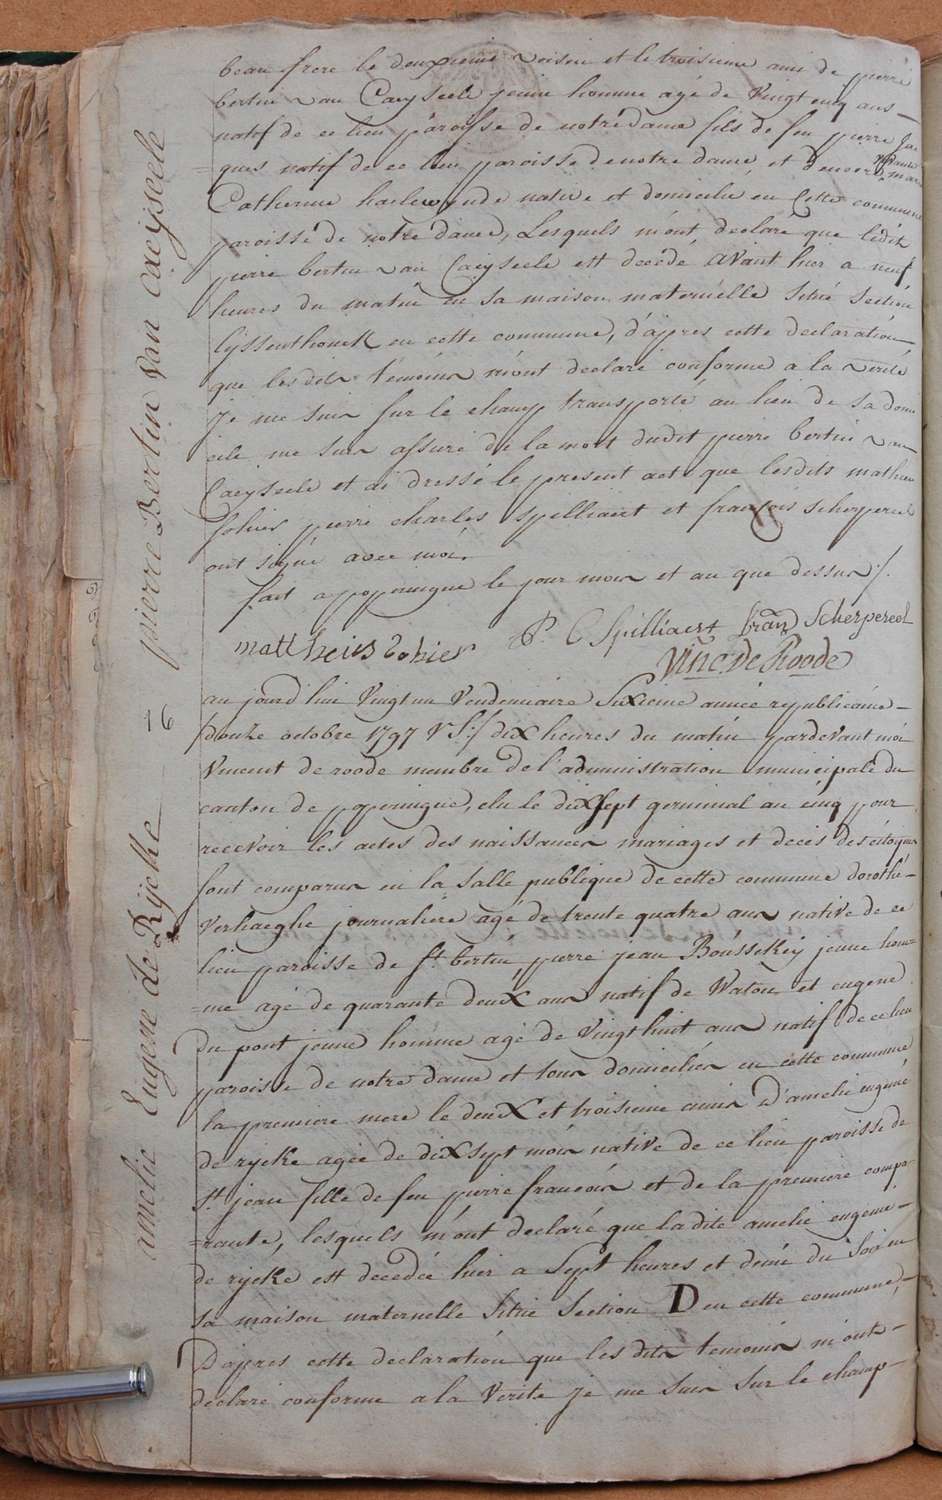 beau frere le deuxieme voisin et le troisieme ami de pierre
bertin van Caeyseele jeune homme agé de Vingt cinq ans
natif de ce lieu paroisse de notre dame fils de feu pierre Jac
=ques natif de ce lieu paroisse de notre dame et d'encore
Catherine natíve et domicilié en Cette commune
paroisse de notre dame, Lesquels m'ont declaré que ledit
pierre bertin van Caeyseele est decedé avant hier a neuf
heures du matin en sa maison maternelle Sitié Section
Lyssenthouck en cette commune, d'apres cette declaration
que lesdits temoins m'ont declaré conforme a la verité
je me suis sur le champ transporté au lieu de sa domi
cile me suis assuré de la mort dudit pierre bertin van
Caeyseele et ai dressé le present act que lesdits mathieu
Johier pierre charles Spilliaert et françois scherpereel
ont signé avec moi.
fait a popernigue le jour mois et an que dessus /.
mattheus Cohier P. C Spilliaert fran Scherpereel
Vinc. De Roode
au jourd'hui Vingt un Vendemiaire Sixieme année republicaine
/douze octobre 1797 V S:/ dix heures du matin pardevant moi
Vincent de roode membre de l'administration municipale du
canton de popernigue, elu le dix sept germinal an cinq pour
recevoir les actes des naissances mariages et decès des citoyens
sont comparus en la salle publique de cette commune dorothé
Verhaeghe journaliere agé de trente quatre ans native de ce
lieu paroisse de st bertin, pierre jean Boussekey jeune hom
=me agé de quarante deux ans natif de Watou et eugene
Du pont jeune homme agé de Vingt huit ans natif de ce lieu
paroisse de notre dame et tous domiciliés en cette commune
la premiere mere le deux et troisieme amis d'amelie eugenié
de rycke agée de dix sept mois native de ce lieu paroisse de
St. jean fille de feu pierre françois et de la premiere compa
=rante, lesquels m'ont declaré que la dite amelie eugenie
de rycke est decedée hier a Sept heures et demi du Soir en
sa maison maternelle Sitié Section D en cette commune,
D'apres cette declaration que lesdits temoins m'ont
declaré conforme a la Verite je me suis sur le champ
pierre Bertin Van Caeyseele
16
amelie Eugene de Rycke